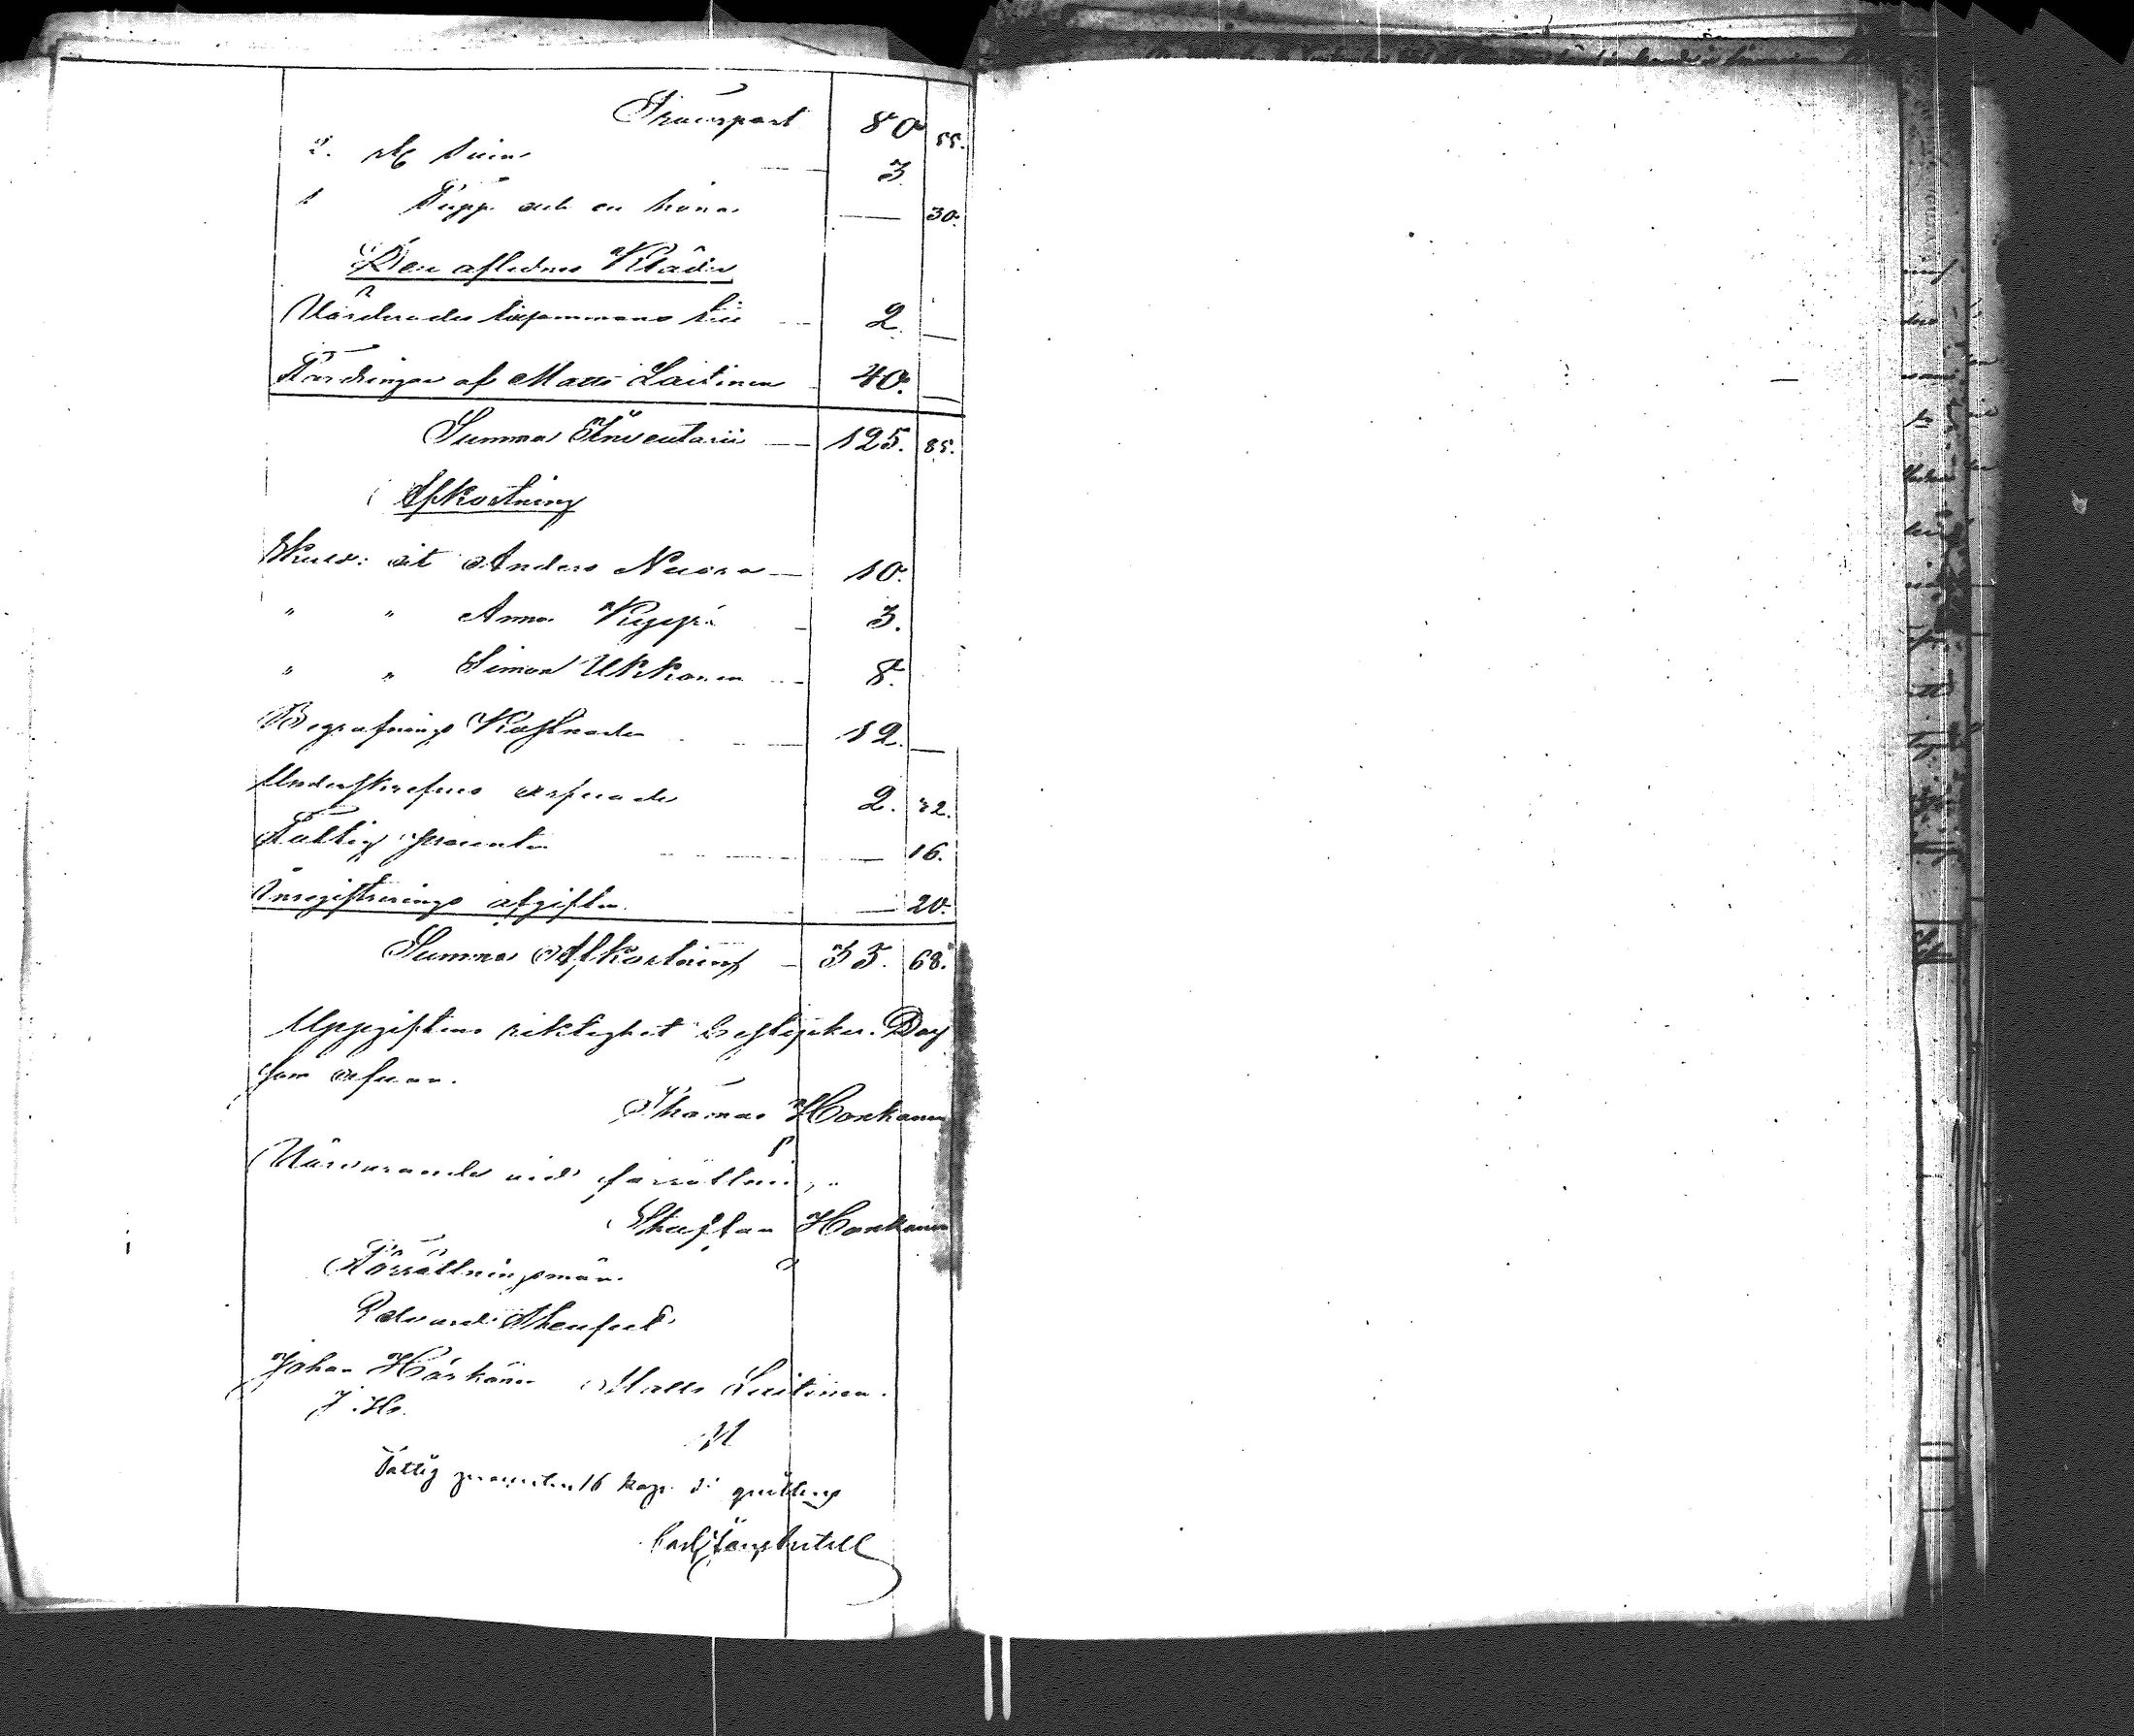 Transport 80 55.
2. st Svin 3
1 Tupp och en höna — 30.
Den aflednes Kläder
Värderades tillsammans till 2. —
Fordringar af Matts Laitinen 40. —
Summa Inventarii 125. 85.
Afkortning
Skuld: åt Anders Nuora 10.
" " Anna 3.
" " Simon Ukkonen 8.
Begrafnings Kostnader 12. —
Underskrefnes arfvode 2. 32.
Fattig procenten — 16.
Inregistrerings afgiften — 20.
Summa Afkortning 35. 68.
Uppgiftens riktighet
som ofvan.
Thomas Honkanen
Närvarande vid förrättningen
Staffan Honkanen
Förrättningsmän.
Edvard
Johan Härkönen Matts Laitinen.
J. H.
Fattig procenten 16 kop. Sr qvitteras
Carl